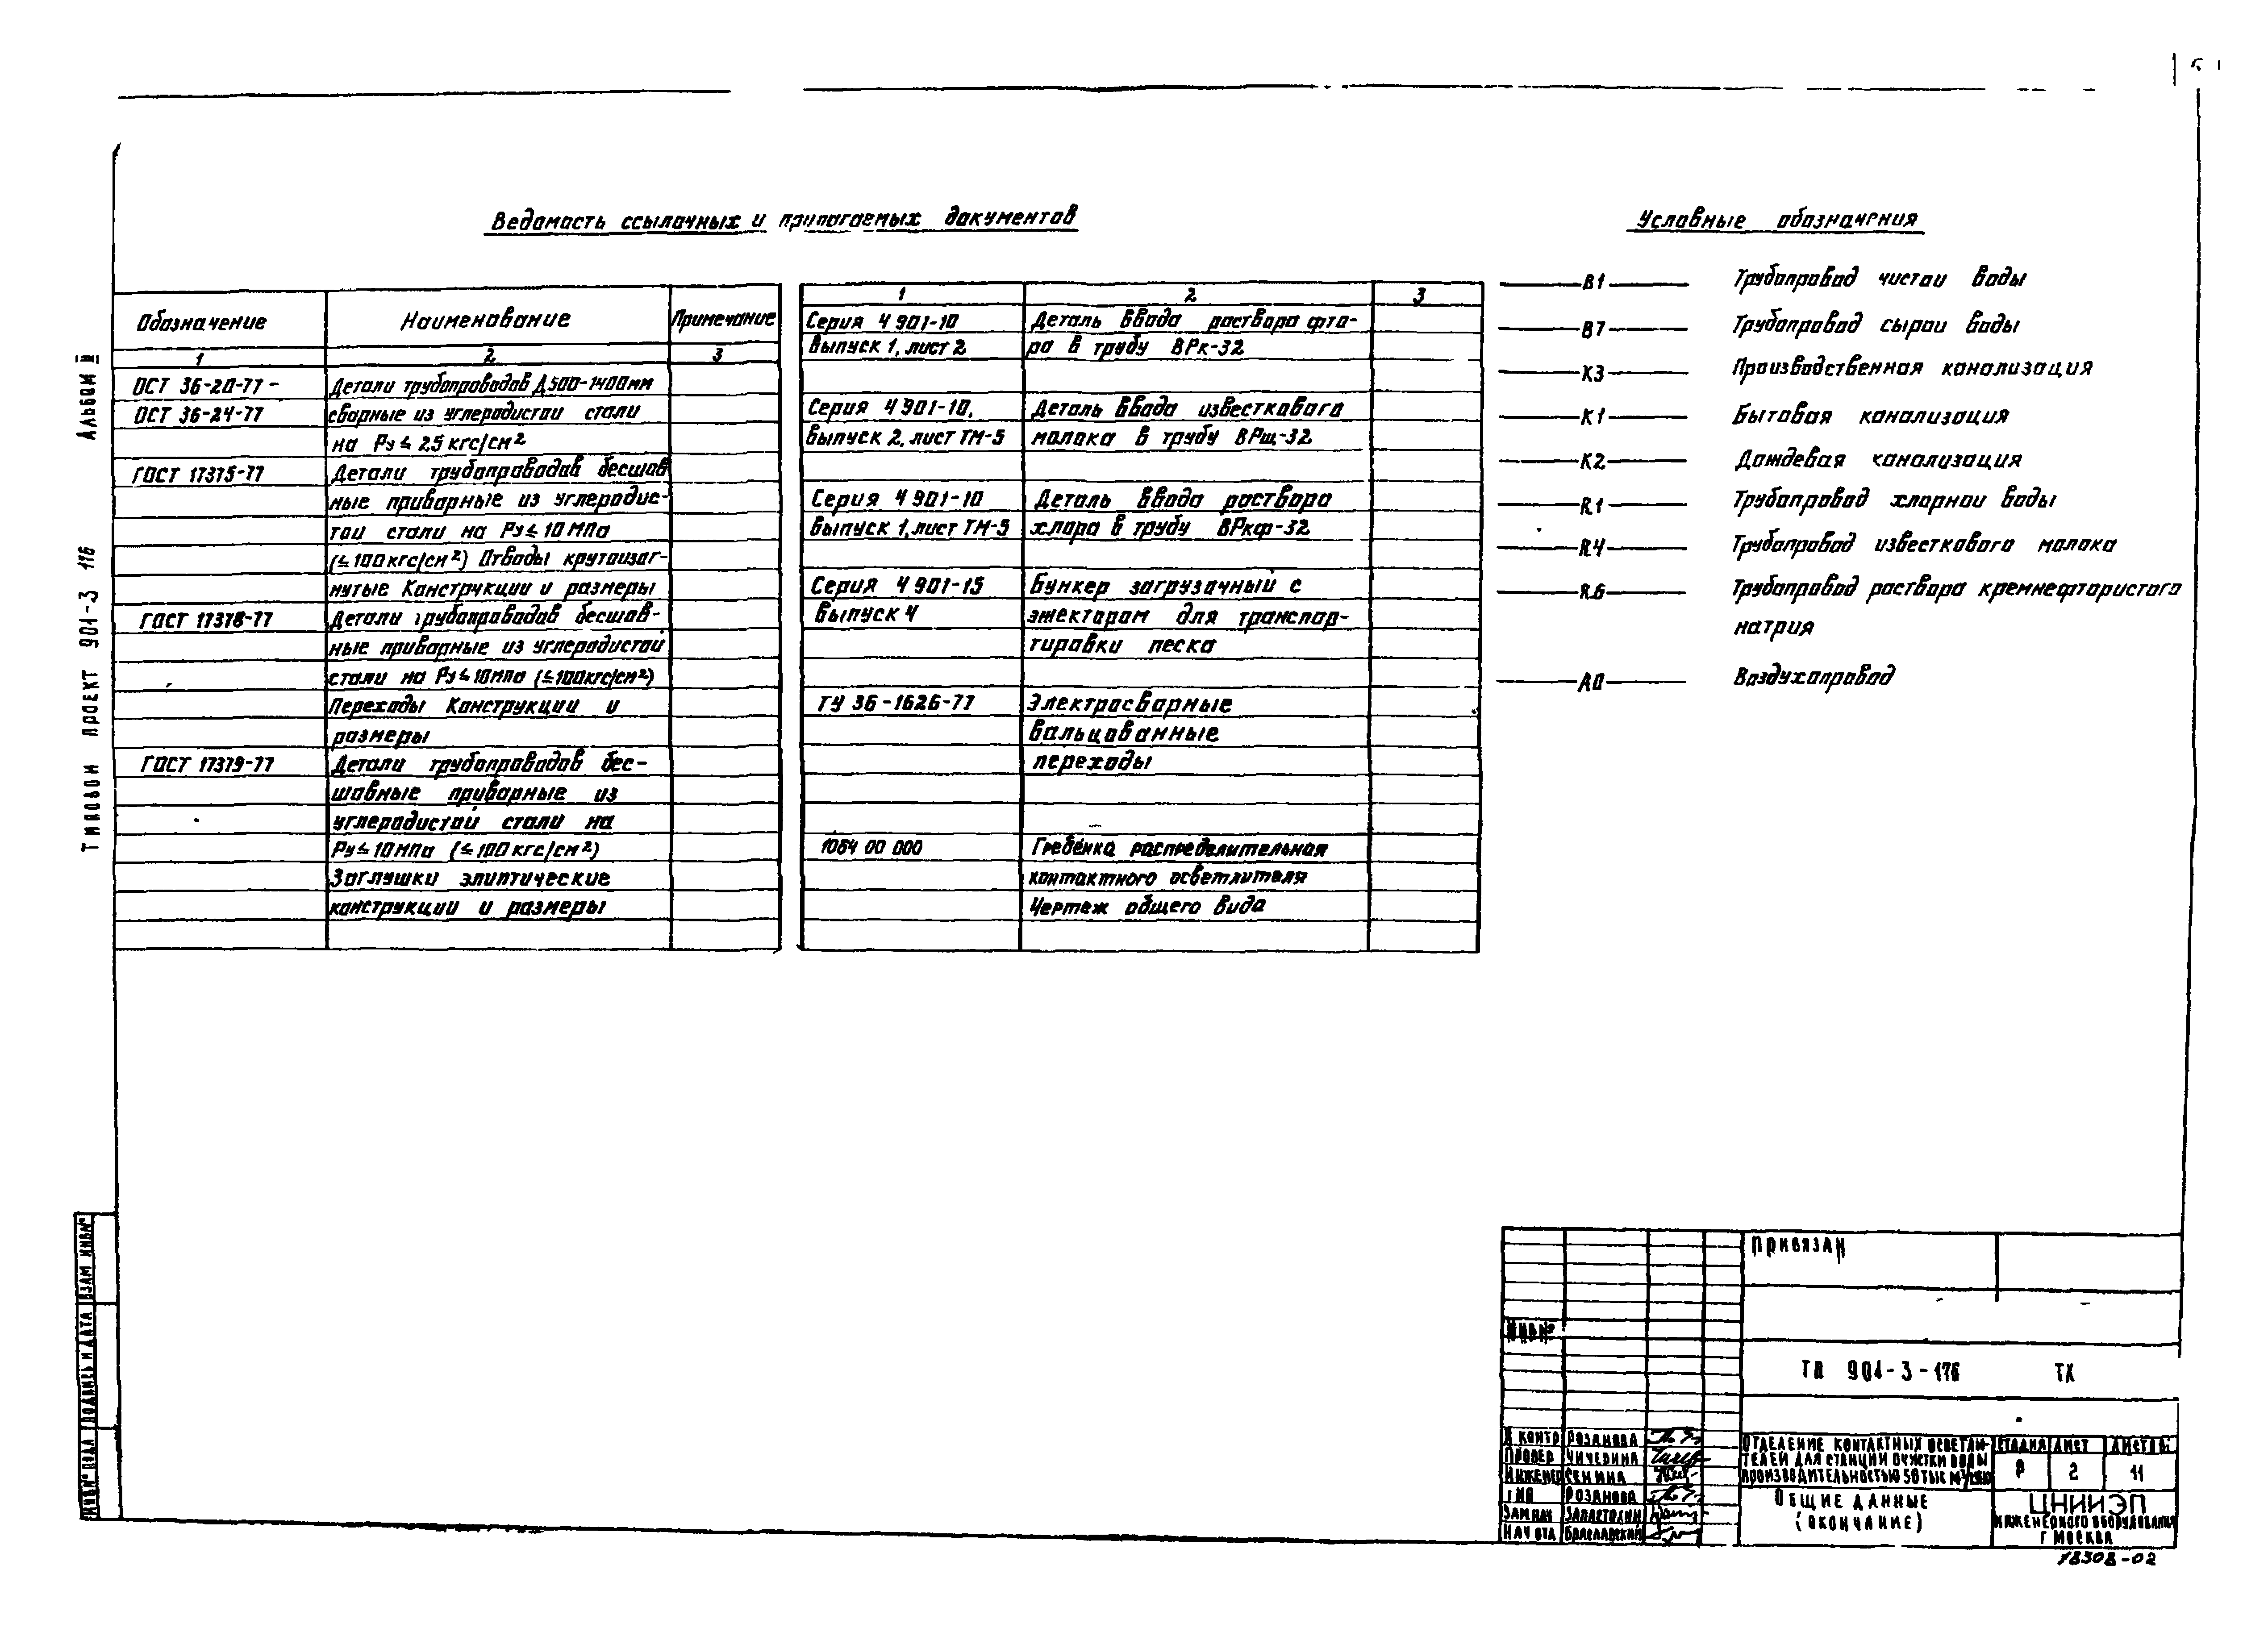 Ведомость ссылочных и прилагаемых документов
Обозначение Наименование Примечание
1 2 3
ОСТ 36-20-77 - Детали трубопроводов Д500-1400мм
ОСТ 36-24-77 сварные из углеродистой стали
на Ру ≤ 25 кгс/см²
ГОСТ 17375-77 Детали трубопроводов бесшов
ные приварные из углеродис-
той стали на Ру ≤ 10 МПа
(≤ 100 кгс/см²) Отводы крутоизог-
нутые Конструкции и размеры
ГОСТ 17378-77 Детали трубопроводов бесшов-
ные приварные из углеродистой
стали на Ру ≤ 10МПа (≤100кгс/см²)
Переходы Конструкции и
размеры
ГОСТ 17379-77 Детали трубопроводов бес-
шовные приварные из
углеродистой стали на
Ру ≤ 10МПа (≤ 100 кгс/см²)
Заглушки элиптические
конструкции и размеры
1 2 3
Серия 4 901-10 Деталь ввода раствора фто-
выпуск 1, лист 2 ра в трубу ВРк-32
Серия 4 901-10, Деталь ввода известкового
выпуск 2, лист ТМ-5 молока в трубу ВРщ-32
Серия 4 901-10 Деталь ввода раствора
выпуск 1, лист ТМ-5 хлора в трубу ВРкф-32
Серия 4 901-15 Бункер загрузочный с
выпуск 4 эжектором для транспор-
тировки песка
ТУ 36-1626-77 Электросварные
вальцованные
переходы
1064 00 000 Гребенка распределительная
контактного осветлителя
Чертеж общего вида
Условные обозначения
В1 Трубопровод чистой воды
В7 Трубопровод сырой воды
К3 Производственная канализация
К1 Бытовая канализация
К2 Дождевая канализация
R1 Трубопровод хлорной воды
R4 Трубопровод известкового молока
R6 Трубопровод раствора кремнефтористого
натрия
А0 Воздухопровод
Альбом II
Типовой проект 901-3 176
Взам инв№
Подпись и дата
Инв№ подл
Привязан
Инв№
ТП 901-3-176 ТХ
Н контр Розанова
Провер Чичерина
Инженер Семина
ГИП Розанова
Зам нач
Нач отд Браславский
Отделение контактных осветли-
телей для станции очистки воды
производительностью 50 тыс м³/сут
Стадия Лист Листов
Р 2 11
Общие данные
(окончание)
ЦНИИЭП
инженерного оборудования
г Москва
18308-02